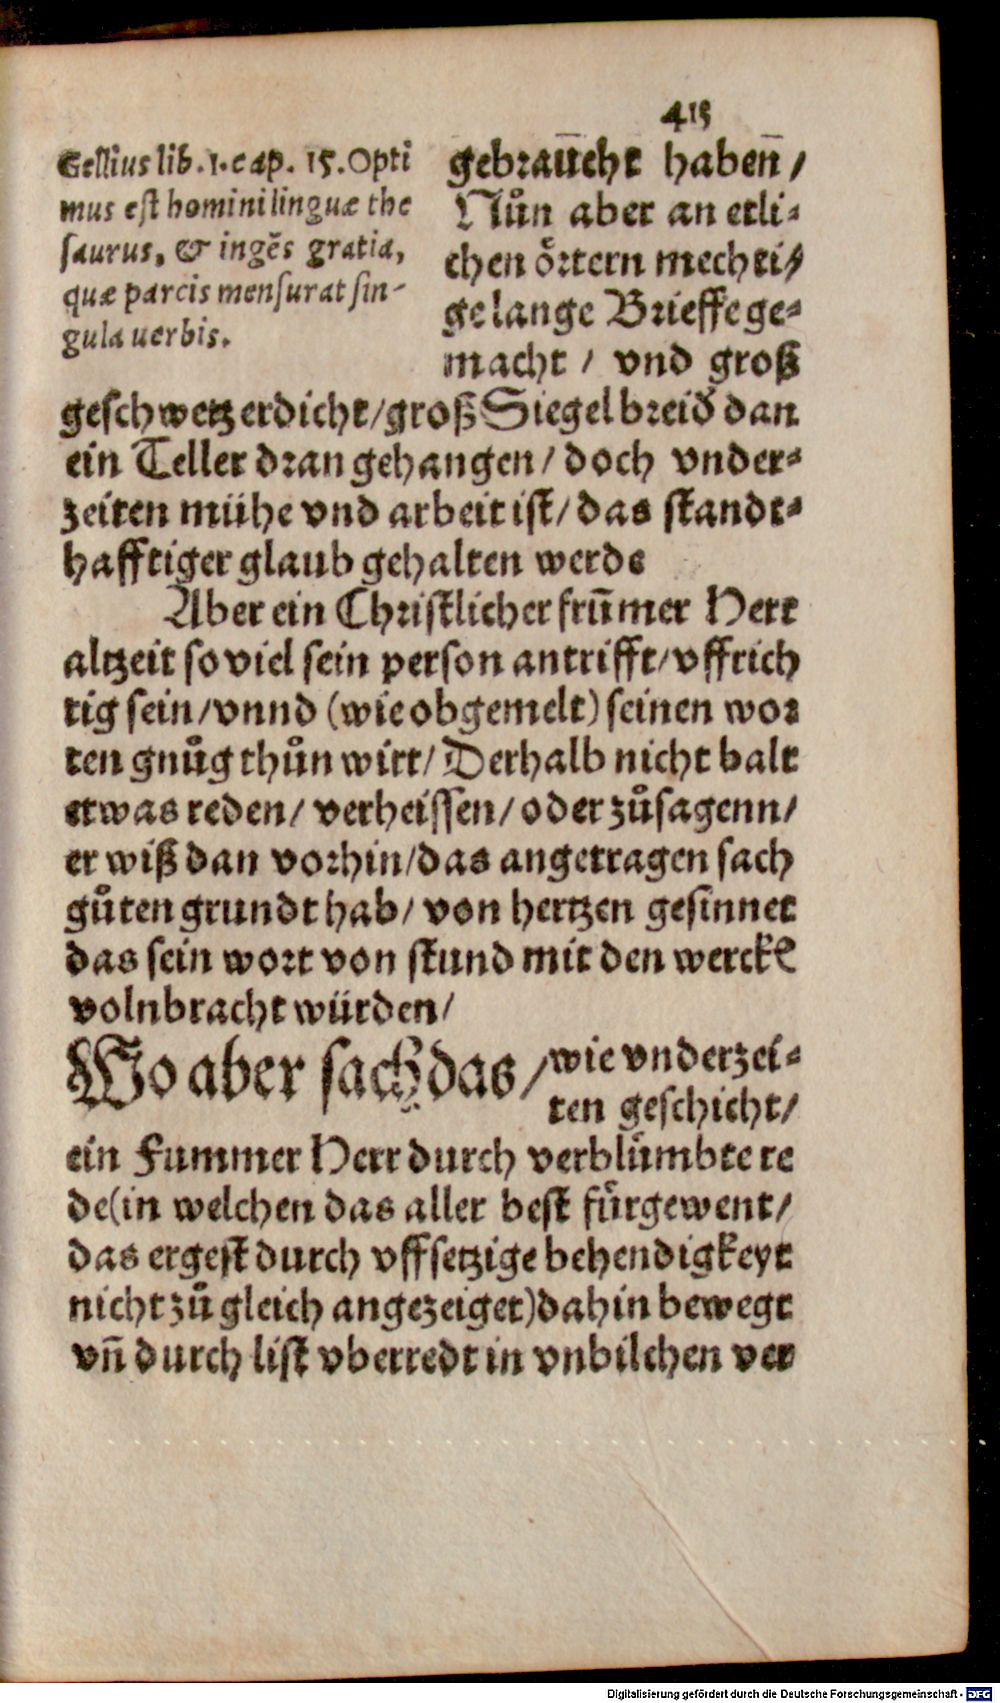 415
Gellius lib. 1. cap. 15. Opti
mus est homini linguæ the
saurus, & ingẽs gratia,
quæ parcis mensurat sin-
gula uerbis.
gebrau̅cht haben̅ /
Nůn aber an etli-
chen oͤrtern mechti-
ge lange Brieffe ge-
macht / vnd groß
geschwetz erdicht/groß Siegel breid̛ dan
ein Teller dran gehangen/ doch vnder-
zeiten mühe vnd arbeit ist/ das standt-
hafftiger glaub gehalten werde
Aber ein Christlicher fru̅mer Herr
altzeit so viel sein person antrifft/vffrich
tig sein/vnnd (wie obgemelt) seinen wor
ten gnůg thůn wirt/ Derhalb nicht balt
etwas reden/ verheissen/ oder zůsagenn/
er wiß dan vorhin/das angetragen sach
gůten grundt hab/ von hertzen gesinnet
das sein wort von stund mit den werckẽ
volnbracht würden/
Wo aber sach das / wie vnderzei-
ten geschicht/
ein Fummer Herr durch verbluͤmbte re
de(in welchen das aller best fuͤrgewent/
das ergest durch vffsetzige behendigkeyt
nicht zů gleich angezeiget)dahin bewegt
vn̅ durch list vberredt in vnbilchen ver
Digitalisierung gefördert durch die Deutsche Forschungsgemeinschaft - DFG